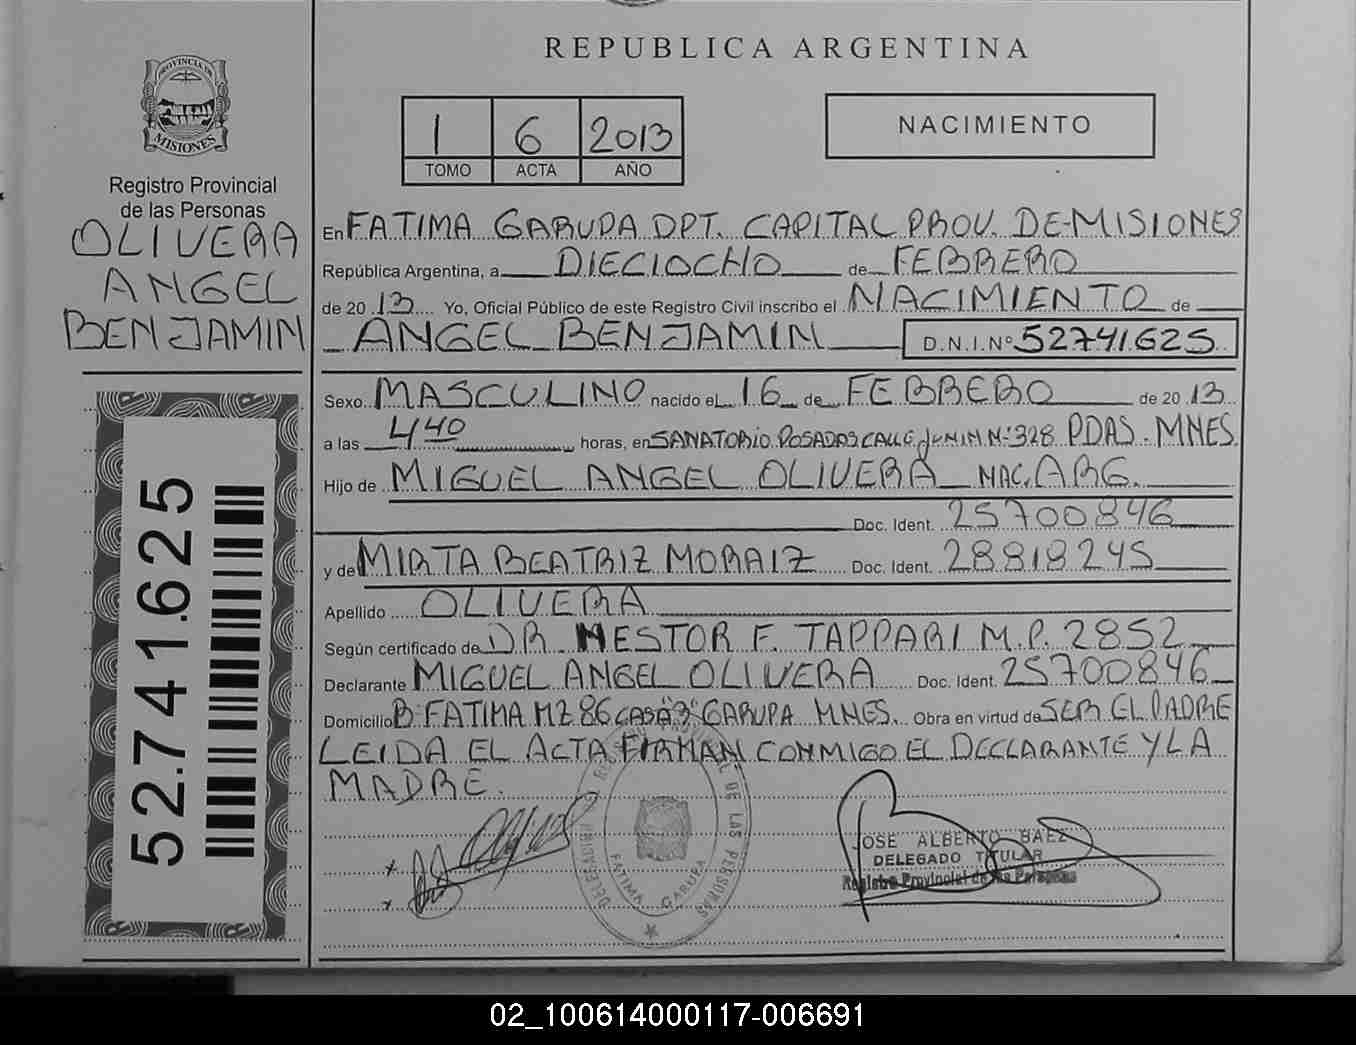 REPUBLICA ARGENTINA
PROVINCIA DE
MISIONES
Registro Provincial
de las Personas
OLIVERA
ANGEL
BENJAMIN
52.741.625
1 6 2013
TOMO ACTA AÑO
NACIMIENTO
En FATIMA GARUPA DPT. CAPITAL PROV. DE-MISIONES
República Argentina, a DIECIOCHO de FEBRERO
de 20 13 Yo, Oficial Público de este Registro Civil inscribo el NACIMIENTO de
ANGEL BENJAMIN D.N.I.Nº 52741625
Sexo MASCULINO nacido el 16 de FEBRERO de 20 13
a las 4 40 horas, en SANATORIO POSADAS CALLE JUNIN Nº 328 PDAS. MNES.
Hijo de MIGUEL ANGEL OLIVERA NAC. ARG.
Doc. Ident. 25700846
y de MIRTA BEATRIZ MORAIZ Doc. Ident. 28818245
Apellido OLIVERA
Según certificado de DR. NESTOR F. TAPPARI M.P. 2852
Declarante MIGUEL ANGEL OLIVERA Doc. Ident. 25700846
Domicilio Bº FATIMA MZ 86 CASA "3" GARUPA MNES. Obra en virtud de SER EL PADRE
LEIDA EL ACTA FIRMAN CONMIGO EL DECLARANTE Y LA
MADRE.
DE LAS PERSONAS
FATIMA GARUPA
JOSE ALBERTO BAEZ
DELEGADO TITULAR
Registro Provincial de las Personas
02_100614000117-006691